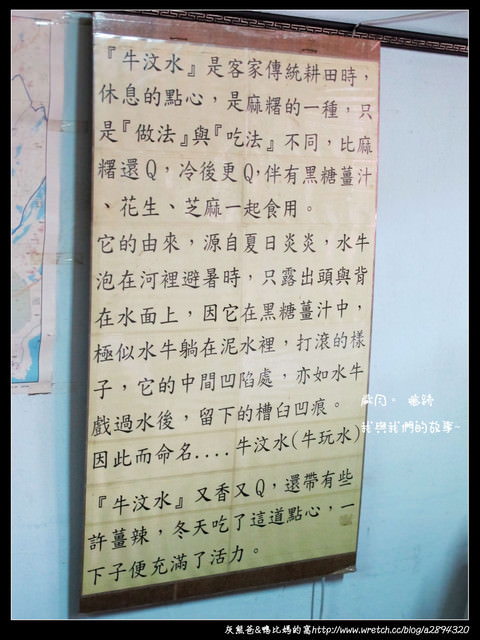 『牛汶水』是客家傳統耕田時，
休息的點心，是麻糬的一種，只
是『做法』與『吃法』不同，比麻
糬還Q，冷後更Q，伴有黑糖薑汁
、花生、芝麻一起食用。
它的由來，源自夏日炎炎，水牛
泡在河裡避暑時，只露出頭與背
在水面上，因它在黑糖薑汁中，
極似水牛躺在泥水裡，打滾的樣
子，它的中間凹陷處，亦如水牛
戲過水後，留下的槽臼凹痕。
因此而命名....牛汶水(牛玩水)
『牛汶水』又香又Q，還帶有些
許薑辣，冬天吃了這道點心，一
下子便充滿了活力。
我與我們的故事~
灰熊爸&鴨比媽的窩http://www.wretch.cc/blog/a2894320